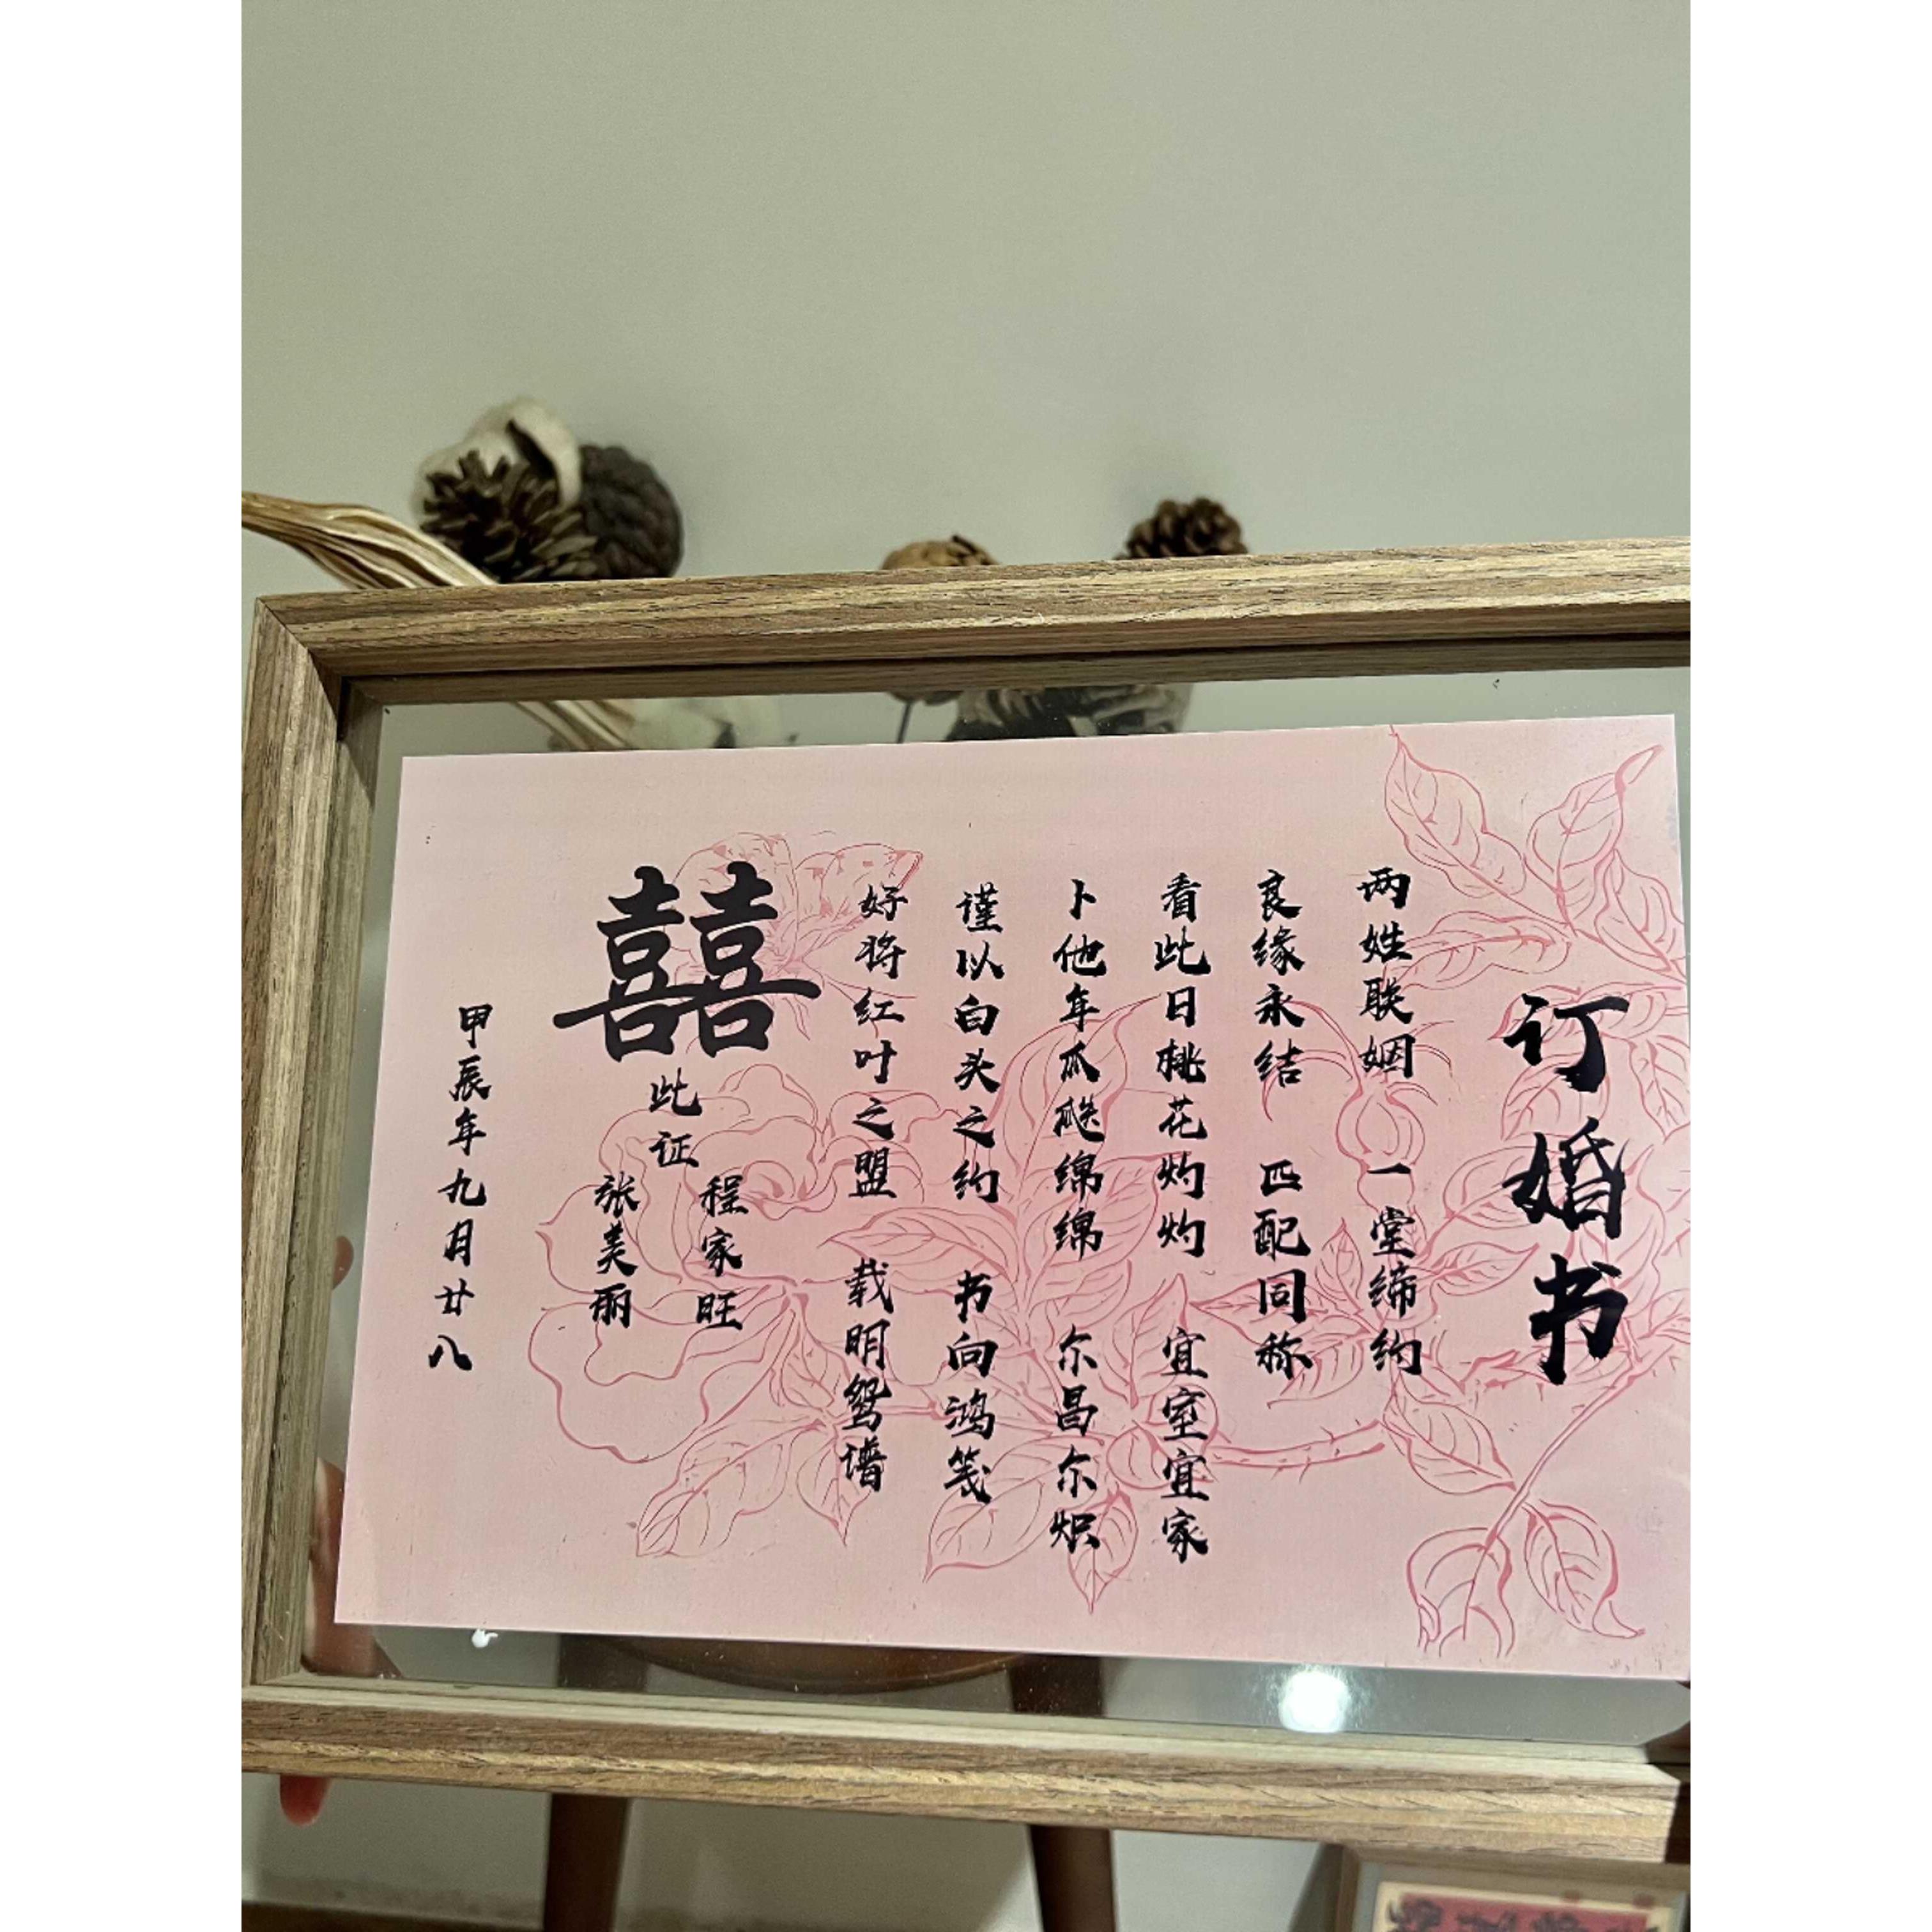 订婚书
两姓联姻 一堂缔约
良缘永结 匹配同称
看此日桃花灼灼 宜室宜家
卜他年瓜瓞绵绵 尔昌尔炽
谨以白头之约 书向鸿笺
好将红叶之盟 载明鸳谱
囍
此证
程家旺
张美丽
甲辰年九月廿八